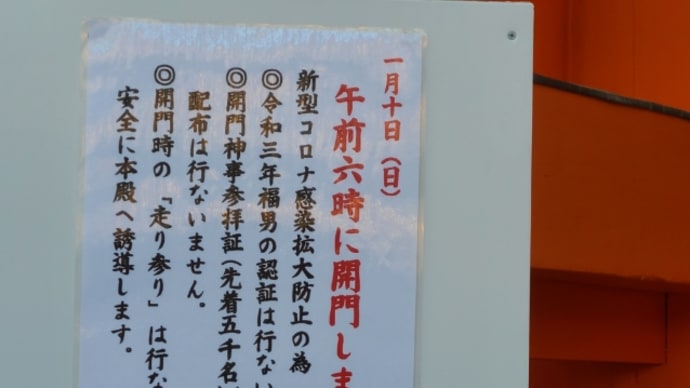 一月十日(日)
午前六時に開門しま
新型コロナ感染拡大防止の為
◎令和三年福男の認証は行ない
◎開門神事参拝証(先着五千名
配布は行ないません。
◎開門時の「走り参り」は行な
安全に本殿へ誘導します。